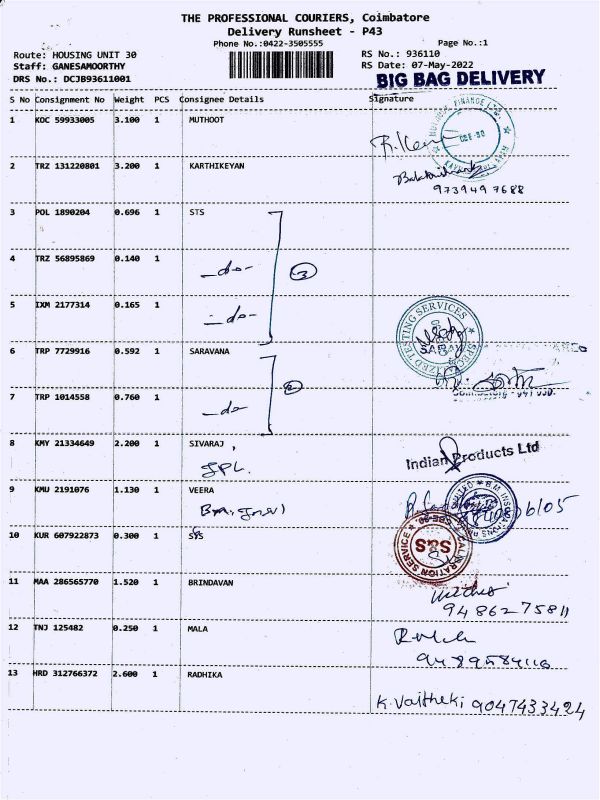 THE PROFESSIONAL COURIERS, Coimbatore
Delivery Runsheet - P43
Phone No.:0422-3505555
Page No.:1
Route: HOUSING UNIT 30
RS No.: 936110
Staff: GANESAMOORTHY
RS Date: 07-May-2022
DRS No.: DCJB93611001
BIG BAG DELIVERY
S No Consignment No Weight PCS Consignee Details Signature
1 KDC 59933005 3.100 1 MUTHOOT
2 TRZ 131220801 3.200 1 KARTHIKEYAN
9739497688
3 POL 1890204 0.696 1 STS
4 TRZ 56895869 0.140 1
-do-
3
5 IXM 2177314 0.165 1
-do-
SPECIALIZED TESTING SERVICES
6 TRP 7729916 0.592 1 SARAVANA
7 TRP 1014558 0.760 1
-do-
8 KMY 21334649 2.200 1 SIVARAJ
Indian Products Ltd
9 KMU 2191076 1.130 1 VEERA
10 KUR 607922873 0.300 1 SFS
S&S CALIBRATION SERVICE
11 MAA 286565770 1.520 1 BRINDAVAN
9486275811
12 TNJ 125482 0.250 1 MALA
9489584116
13 HRD 312766372 2.600 1 RADHIKA
K. Vaitheki 9047433424